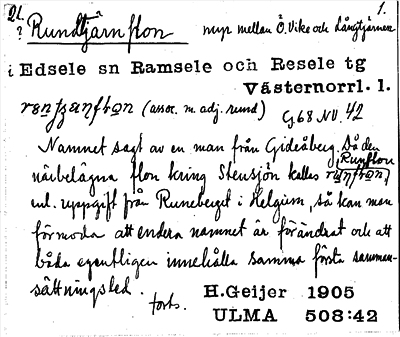 21.
?
Rundtjärnflon
myr mellan Ö. Vike och Långtjärnen
1.
i Edsele sn Ramsele och Resele tg
Västernorrl. l.
(assoc. m. adj. rund) G68 NV. 42
Namnet sagt av en man från Gideåberg. Då den
närbelägna flon kring Stensjön kallas Runflon
enl. uppgift från Runeberget i Helgum, så kan man
förmoda att endera namnet är förändrat och att
båda egentligen innehålla samma första samman-
sättningsled.
forts.
H.Geijer 1905
ULMA 508:42